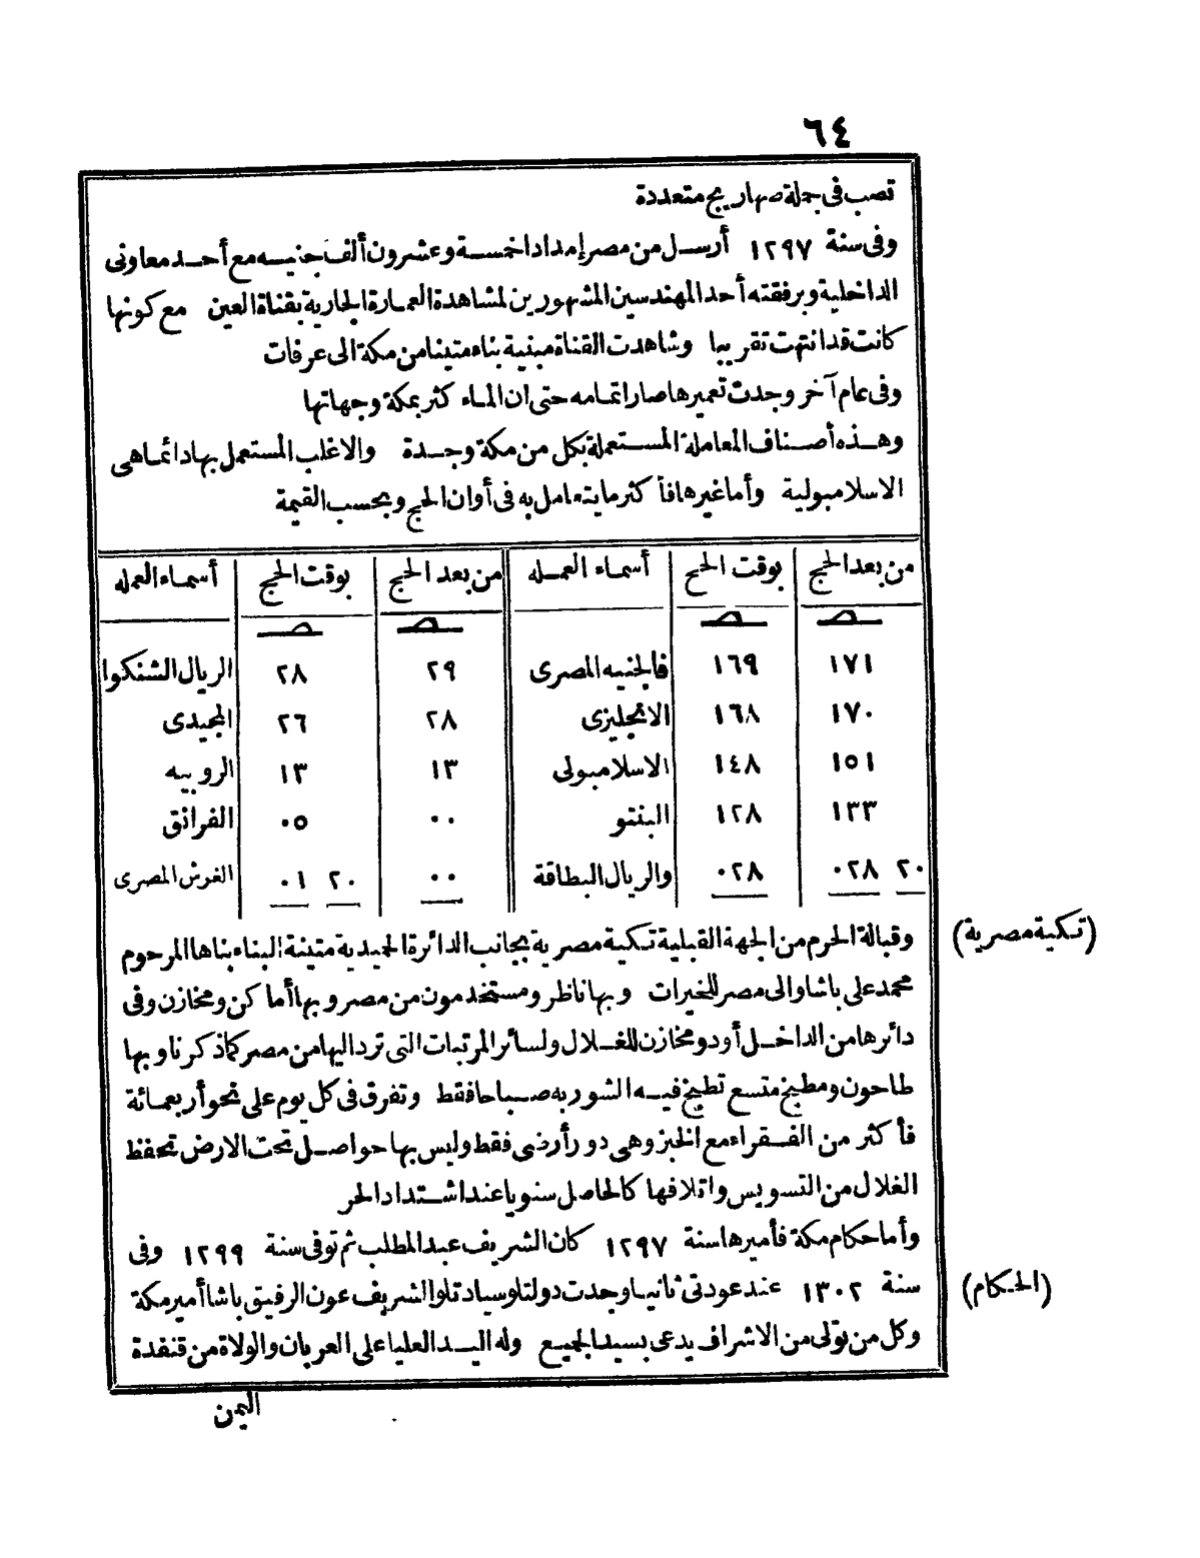 ٦٤
تصب فى جملة صهاريج متعددة
وفى سنة ١٢٩٧ أرسل من مصر إمدادا خمسة وعشرون ألف جنيه مع أحد معاونى
الداخلية وبرفقته أحد المهندسين المشهورين لمشاهدة العمارة الجارية بقناة العين مع كونها
كانت قد انتهت تقريبا وشاهدت القناة مبنية بناء متينا من مكة الى عرفات
وفى عام آخر وجدت تعميرها صار اتمامه حتى ان الماء كثر بمكة وجهاتها
وهذه أصناف المعاملة المستعملة بكل من مكة وجدة والاغلب المستعمل بها دائما هى
الاسلامبولية وأما غيرها فأكثر ما يتعامل به فى أوان الحج وبحسب القيمة
من بعد الحج بوقت الحج أسماء العمله من بعد الحج بوقت الحج أسماء العمله
١٧١ ١٦٩ فالجنيه المصرى ٢٩ ٢٨ الريال الشنكوا
١٧٠ ١٦٨ الانجليزى ٢٨ ٢٦ المجيدى
١٥١ ١٤٨ الاسلامبولى ١٣ ١٣ الروبيه
١٣٣ ١٢٨ البنتو ٠٠ ٠٥ الفرانق
٢٠ ٠٢٨ ٠٢٨ والريال البطاقة ٠٠ ٢٠ ٠١ الغرش المصرى
(تكية مصرية)
وقبالة الحرم من الجهة القبلية تكية مصرية بجانب الدائرة الحميدية متينة البناء بناها المرحوم
محمد على باشا والى مصر للخيرات وبها ناظر ومستخدمون من مصر وبها أماكن ومخازن وفى
دائرها من الداخل أود ومخازن للغلال ولسائر المرتبات التى ترد اليها من مصر كما ذكرنا وبها
طاحون ومطبخ متسع تطبخ فيه الشوربه صباحا فقط وتفرق فى كل يوم على نحو أربعمائة
فأكثر من الفقراء مع الخبز وهى دور أرضى فقط وليس بها حواصل تحت الارض تحفظ
الغلال من التسويس واتلافها كالحاصل سنويا عند اشتداد الحر
وأما حكام مكة فأميرها سنة ١٢٩٧ كان الشريف عبد المطلب ثم توفى سنة ١٢٩٩ وفى
(الحكام)
سنة ١٣٠٢ عند عودتى ثانيا وجدت دولتلو سيادتلو الشريف عون الرفيق باشا أمير مكة
وكل من تولى من الاشراف يدعى بسيد الجميع وله اليد العليا على العربان والولاة من قنفدة
اليمن